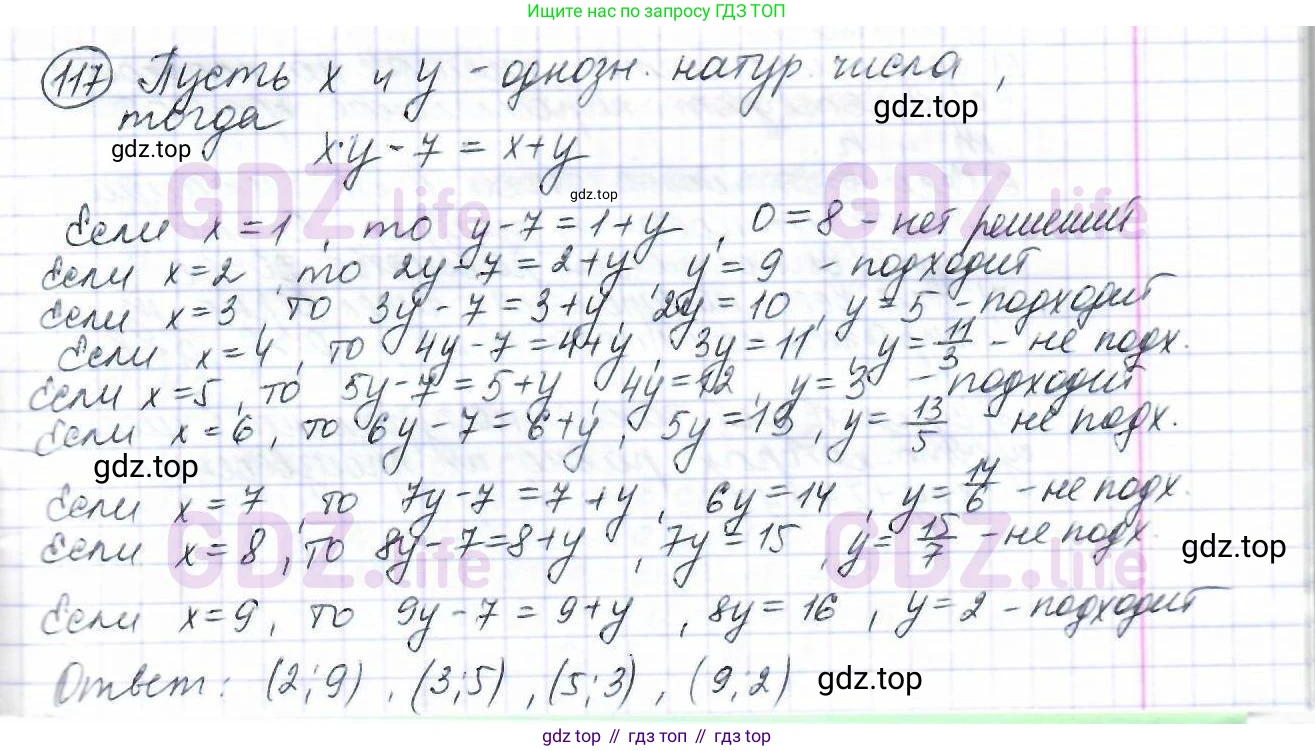 Ищите нас по запросу ГДЗ ТОП
117 Пусть x и y - однозн. натур. числа,
gdz.top
тогда
gdz.top
x·y - 7 = x+y
gdz.top
GDZ.life GDZ.life
Если x=1, то y-7=1+y, 0=8 - нет решений
Если x=2, то 2y-7=2+y, y=9 - подходит
Если x=3, то 3y-7=3+y, 2y=10, y=5 - подходит
Если x=4, то 4y-7=4+y, 3y=11, y=11/3 - не подх.
Если x=5, то 5y-7=5+y, 4y=12, y=3 - подходит
Если x=6, то 6y-7=6+y, 5y=13, y=13/5 - не подх.
gdz.top
Если x=7, то 7y-7=7+y, 6y=14, y=14/6 - не подх.
GDZ.life GDZ.life
Если x=8, то 8y-7=8+y, 7y=15, y=15/7 - не подх.
gdz.top
Если x=9, то 9y-7=9+y, 8y=16, y=2 - подходит
Ответ: (2;9), (3;5), (5;3), (9;2)
gdz.top
gdz.top // gdz.top // gdz.top